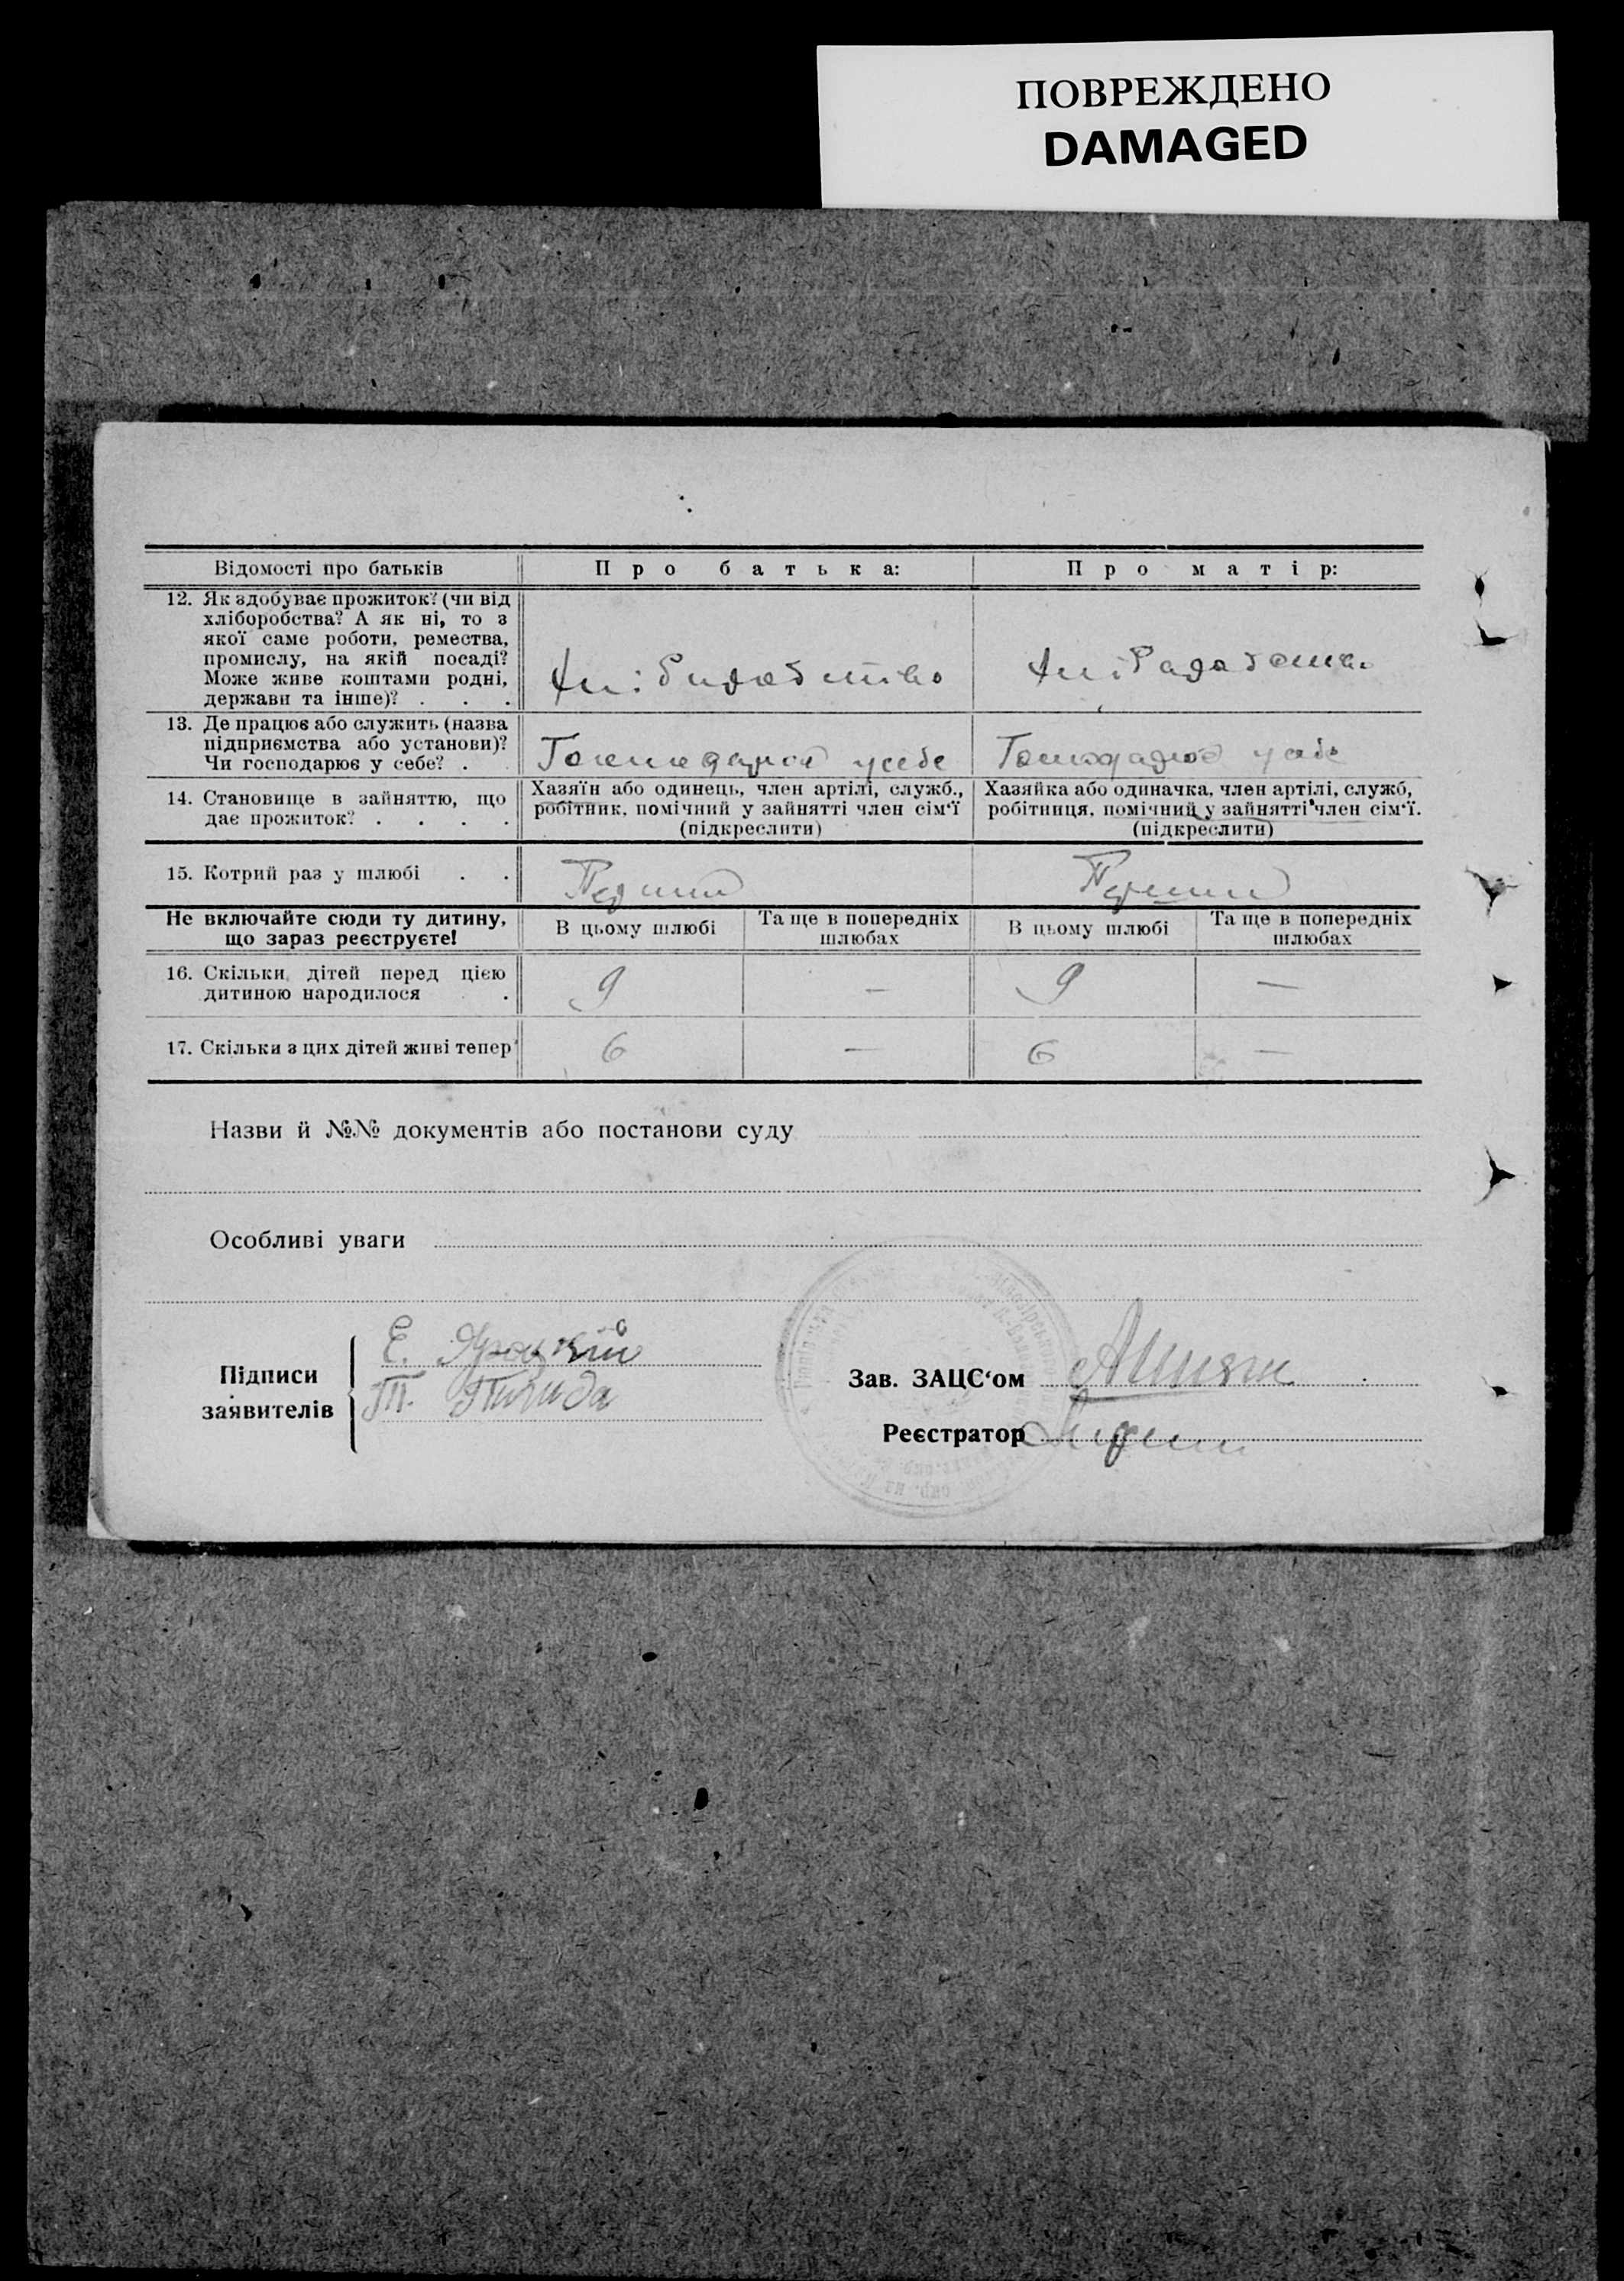 ПОВРЕЖДЕНО
DAMAGED
Відомості про батьків
Про батька:
Про матір:
12. Як здобуває прожиток? (чи від
хліборобства? А як ні, то з
якої саме роботи, ремества,
промислу, на якій посаді?
Може живе коштами родні,
держави та інше)? . . .
13. Де працює або служить (назва
підприємства або установи)?
Чи господарює у себе? .
у себе
14. Становище в зайняттю, що
дає прожиток? . . . .
Хазяїн або одинець, член артілі, служб.,
робітник, помічний у зайнятті член сім‘ї
(підкреслити)
Хазяйка або одиначка, член артілі, служб,
робітниця, помічний у зайнятті член сім‘ї.
(підкреслити)
15. Котрий раз у шлюбі . .
Перший
Перший
Не включайте сюди ту дитину,
що зараз реєструєте!
В цьому шлюбі
Та ще в попередніх
шлюбах
В цьому шлюбі
Та ще в попередніх
шлюбах
16. Скільки дітей перед цією
дитиною народилося .
9
—
9
—
17. Скільки з цих дітей живі тепер
6
—
6
—
Назви й №№ документів або постанови суду
Особливі уваги
Підписи
заявителів
Е. Яроцкий
Т.
Зав. ЗАЦС‘ом
Реєстратор